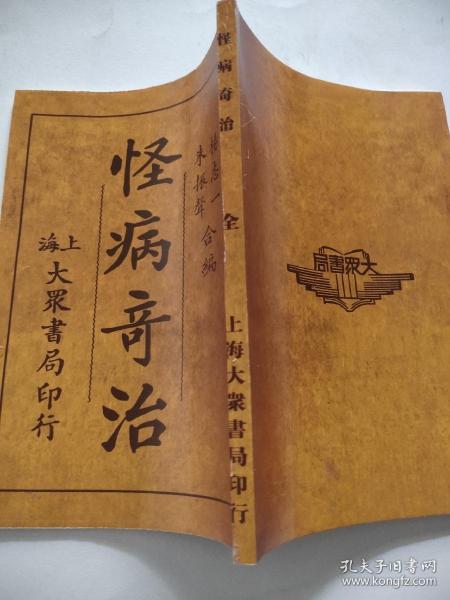 楊志一
朱振聲
合編
怪病竒治
上海
大眾書局印行
怪病奇治
全
上海大衆書局印行
大衆書局
孔夫子旧书网
www.kongfz.com